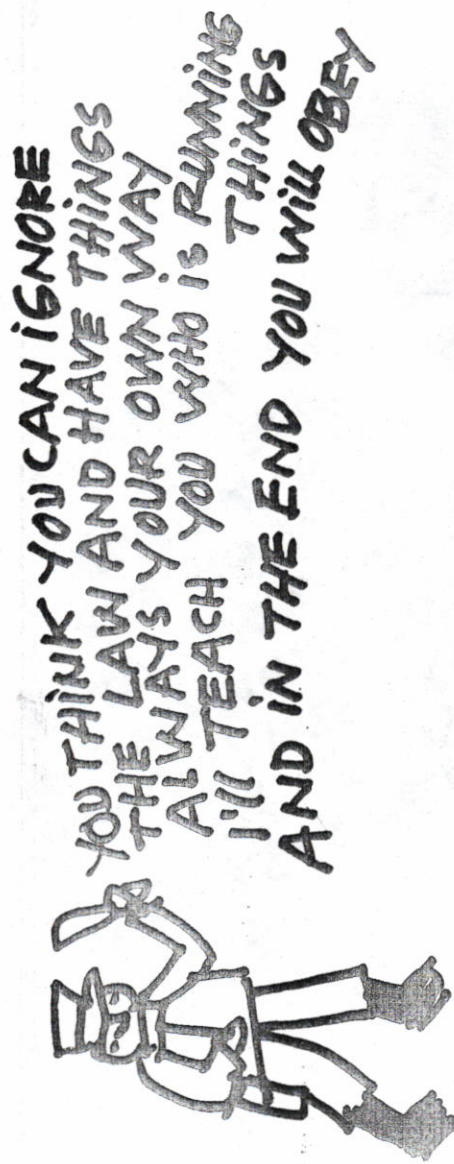 YOU THINK YOU CAN iGNORE
THE LAW AND HAVE THiNGS
ALWAYS YOUR OWN WAY
I'll TEACH YOU WHO iS RUNNiNG
THiNGS
AND iN THE END YOU WiLL OBEY